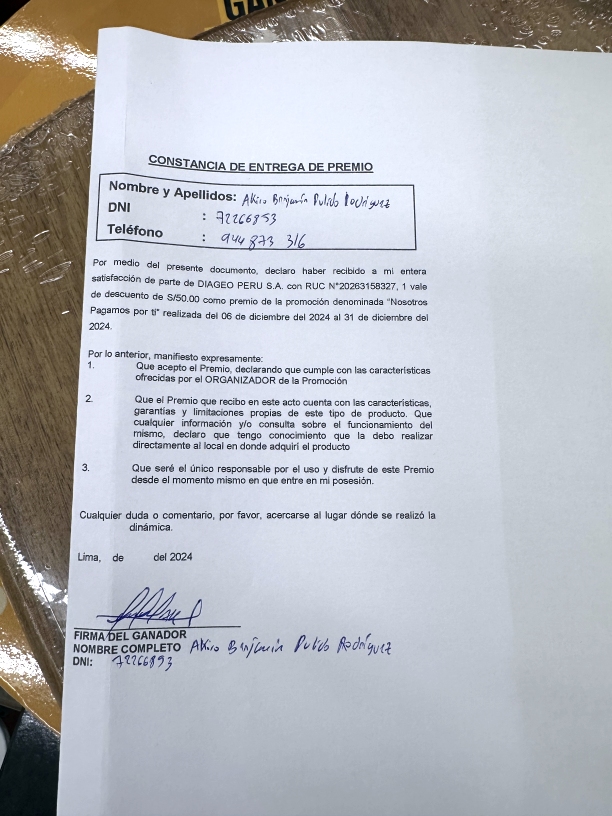 GAN
CONSTANCIA DE ENTREGA DE PREMIO
Nombre y Apellidos: Akiro Benjamín Pulido Rodríguez
DNI : 72266893
Teléfono : 944 873 316
Por medio del presente documento, declaro haber recibido a mi entera
satisfacción de parte de DIAGEO PERU S.A. con RUC N°20263158327, 1 vale
de descuento de S/50.00 como premio de la promoción denominada "Nosotros
Pagamos por ti" realizada del 06 de diciembre del 2024 al 31 de diciembre del
2024.
Por lo anterior, manifiesto expresamente:
1. Que acepto el Premio, declarando que cumple con las características
ofrecidas por el ORGANIZADOR de la Promoción
2. Que el Premio que recibo en este acto cuenta con las características,
garantías y limitaciones propias de este tipo de producto. Que
cualquier información y/o consulta sobre el funcionamiento del
mismo, declaro que tengo conocimiento que la debo realizar
directamente al local en donde adquirí el producto
3. Que seré el único responsable por el uso y disfrute de este Premio
desde el momento mismo en que entre en mi posesión.
Cualquier duda o comentario, por favor, acercarse al lugar dónde se realizó la
dinámica.
Lima, de del 2024
FIRMA DEL GANADOR
NOMBRE COMPLETO Akiro Benjamín Pulido Rodríguez
DNI: 72266893